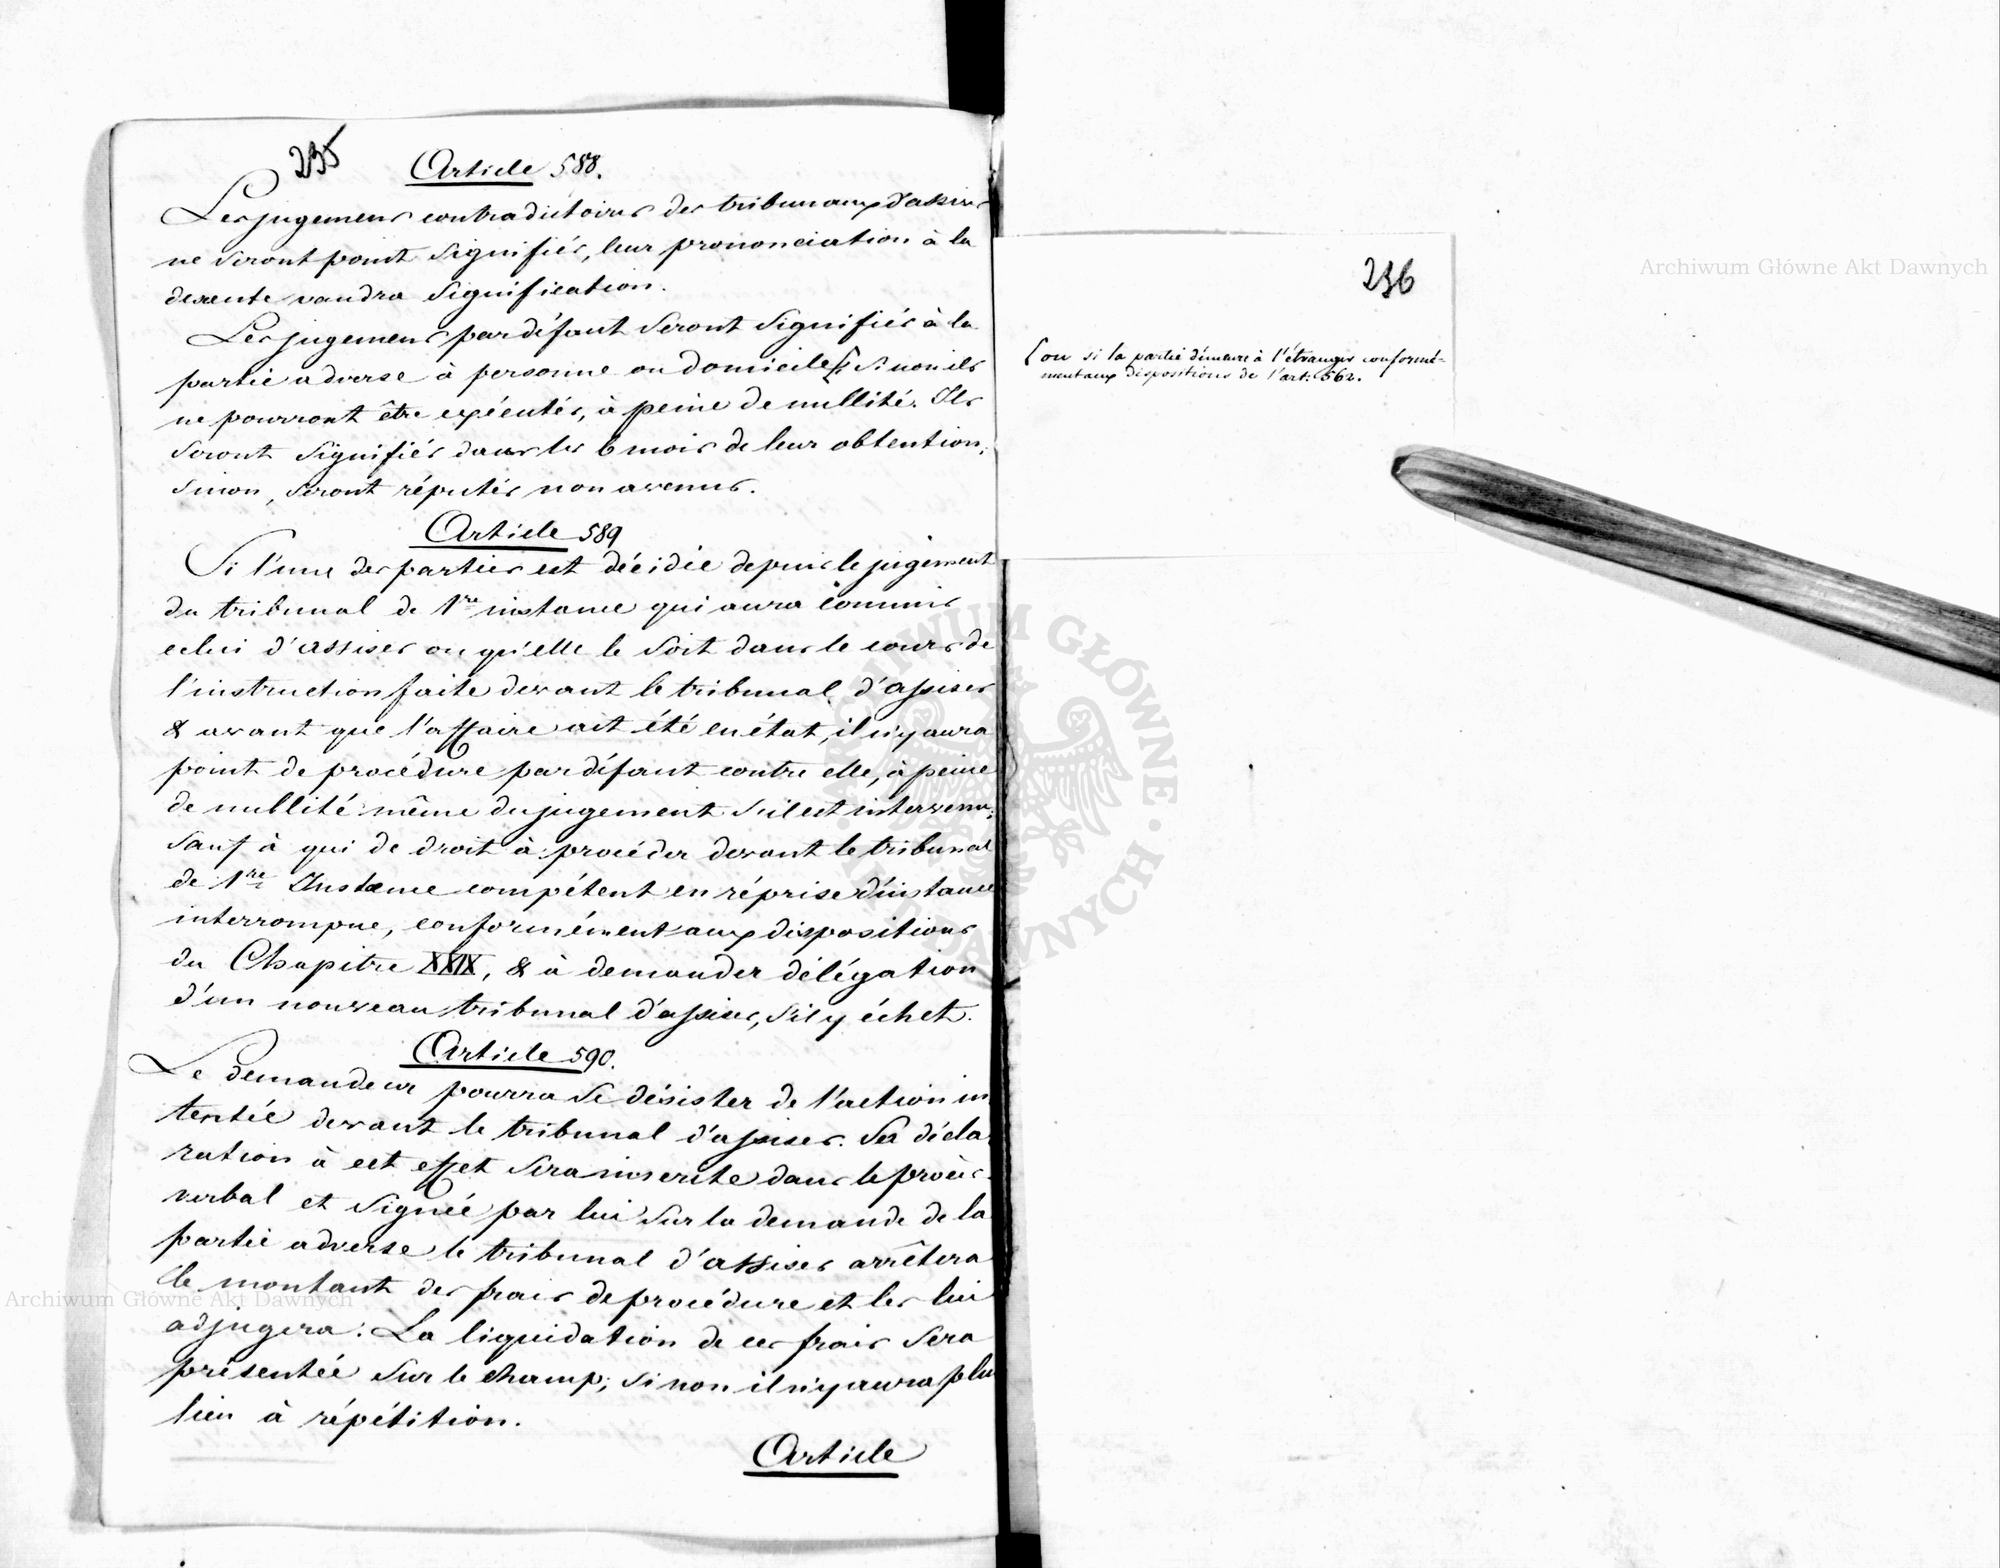 235
Article 588.
Les jugemens contradictoires des tribunaux d'assises
ne seront point signifiés, leur prononciation à la
descente vaudra signification.
Les jugemens par défaut seront signifiés à la
partie adverse à personne ou domicile, sinon ils
ne pourront être exécutés, à peine de nullité. Ils
seront signifiés dans les 6 mois de leur obtention,
sinon, seront réputés non avenus.
Article 589
Si l'une des parties est décidée depuis le jugement
du tribunal de 1re instance qui aura commis
celui d'assises ou qu'elle le soit dans le cours de
l'instruction faite devant le tribunal d'assises
& avant que l'affaire ait été en état, il n'y aura
point de procédure par défaut contre elle, à peine
de nullité même du jugement s'il est intervenu;
sauf à qui de droit à procéder devant le tribunal
de 1re Instance compétent en réprise d'instance
interrompue, conformément aux dispositions
du Chapitre XXIX, & à demander délégation
d'un nouveau tribunal d'assises, s'il y échet.
Article 590.
Le demandeur pourra se désister de l'action in
tentée devant le tribunal d'assises. Sa décla
ration à cet effet sera inscrite dans le procès
verbal et signée par lui sur la demande de la
partie adverse le tribunal d'assises arrêtera
le montant des frais de procédure et les lui
adjugera. La liquidation de ces frais sera
présentée sur le champ; si non il n'y aura plus
lieu à répétition.
Article
236
[ou si la partie démeure à l'étranger conformé-
ment aux dispositions de l'art: 562.
Archiwum Główne Akt Dawnych
Archiwum Główne Akt Dawnych
ARCHIWUM GŁÓWNE AKT DAWNYCH